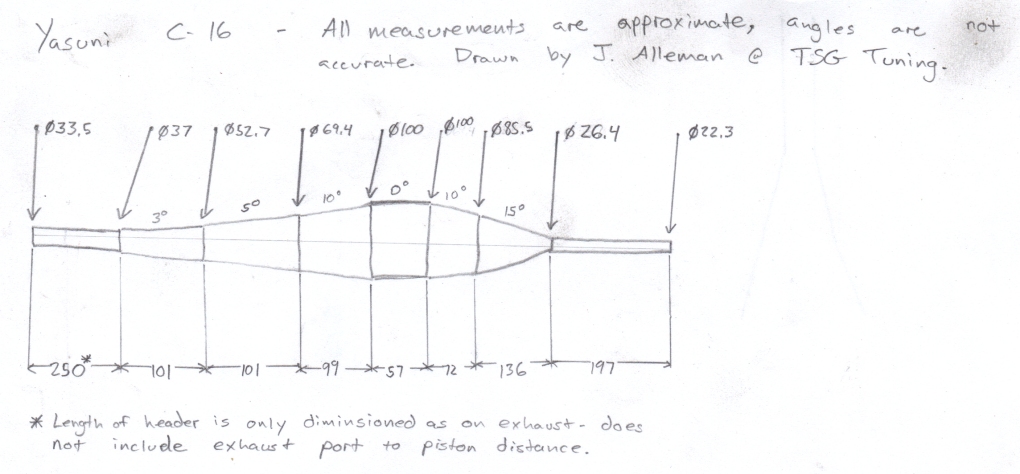 Yasuni C-16 - All measurements are approximate, angles are not
accurate. Drawn by J. Alleman @ TSG Tuning.
Ø33.5 Ø37 Ø52.7 Ø69.4 Ø100 Ø100 Ø85.5 Ø26.4 Ø22.3
3° 5° 10° 0° 10° 15°
250* 101 101 99 57 72 136 197
* Length of header is only diminsioned as on exhaust - does
not include exhaust port to piston distance.